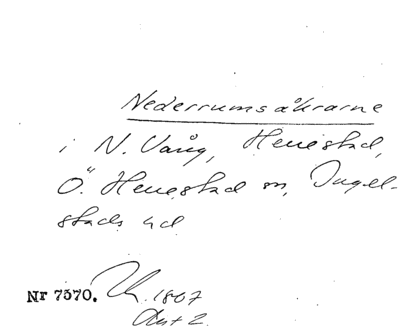 Nederrumsåkrarne
i N. Vång, Henestad,
Ö. Henestad sn, Ingel-
stads hd
Nr 7570. 1807
Akt 2.